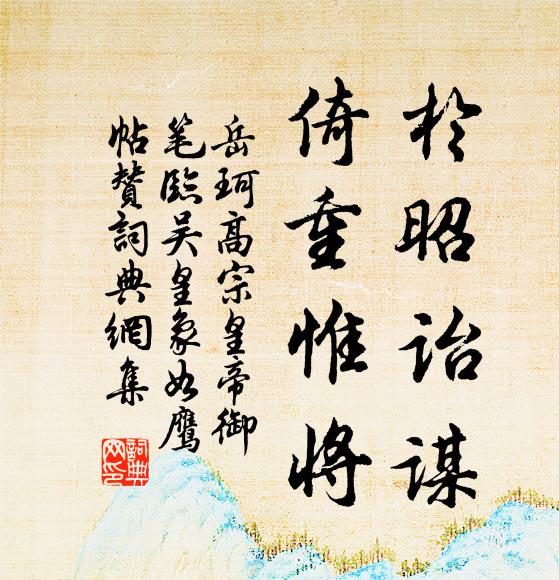 於昭诒谋
倚重惟将
岳珂高宗皇帝御
笔临吴皇象如鹰
帖赞词典網集
詞典
网印